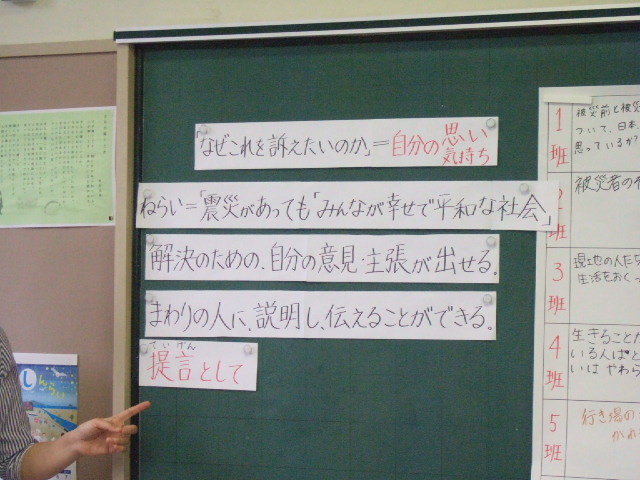 「なぜこれを訴えたいのか」=自分の思い
気持ち
ねらい=「震災があっても「みんなが幸せで平和な社会」
解決のための、自分の意見・主張が出せる。
まわりの人に、説明し、伝えることができる。
ていげん
提言として
1班
被災前と被災
ついて、日本
思っているか?
2
被災者の
3班
現地の人たち
生活をおくっ
4班
生きることだ
いる人は"と
いは やわら
5班
行き場の
しんらい